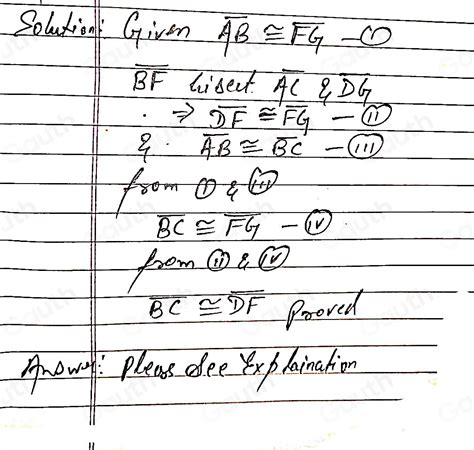 Solution: Given AB ≅ FG - (I)
BF bisect AC & DG
⇒ DF ≅ FG - (II)
& AB ≅ BC - (III)
from (I) & (III)
BC ≅ FG - (IV)
from (II) & (IV)
BC ≅ DF Proved
Answer: Pleas see Explaination